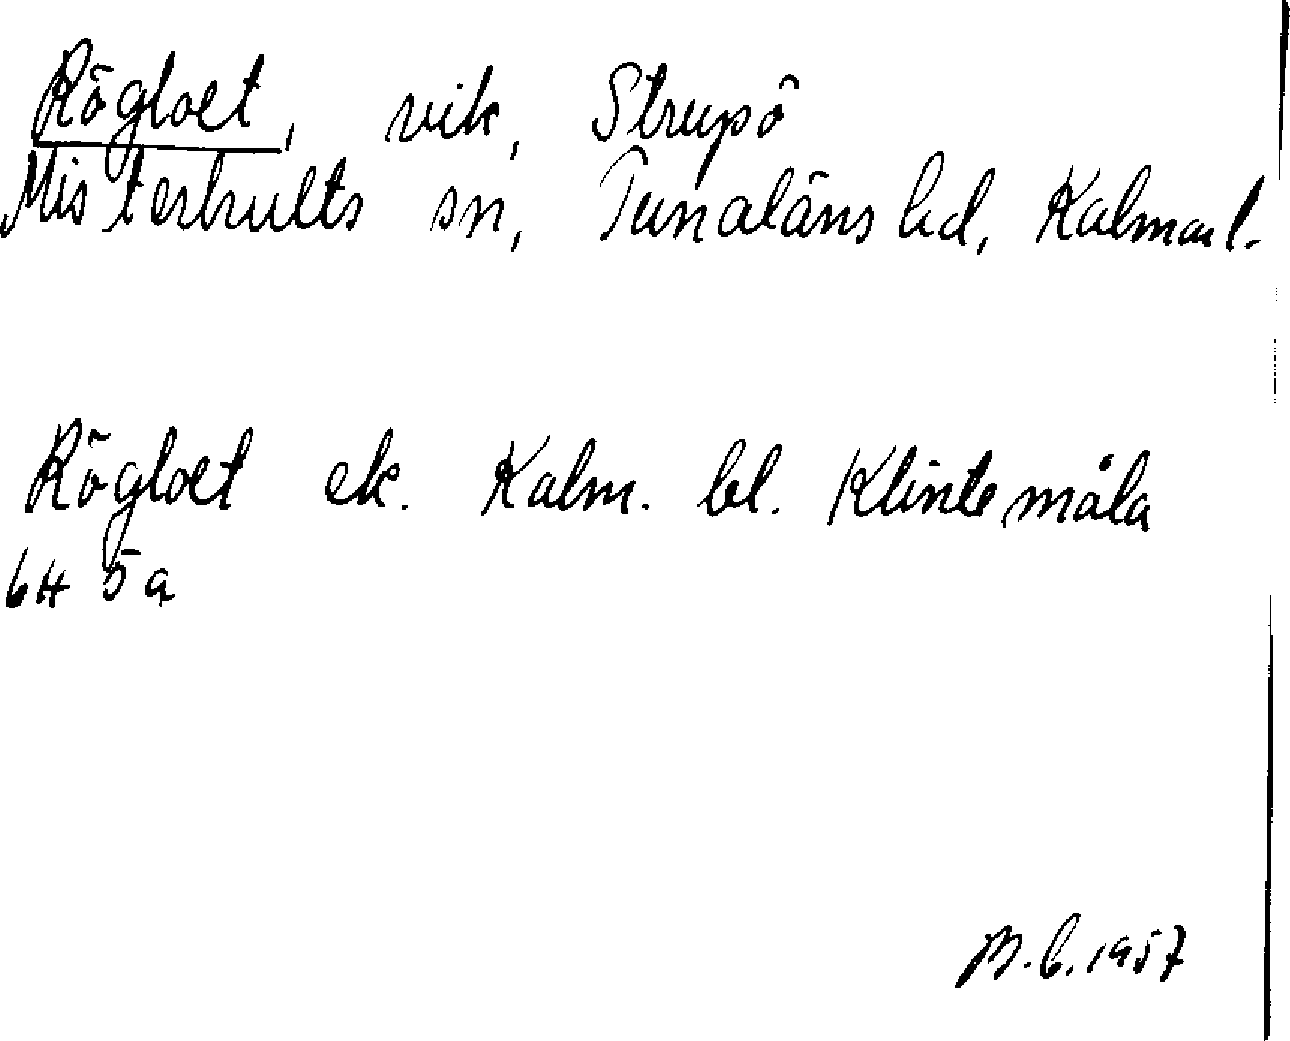 Rögloet, vik, Strupö
Misterhults sn, Tunaläns hd, Kalmar l.
Rögloet ek. Kalm. bl. Klintemåla
6H 5a
B.C. 1957